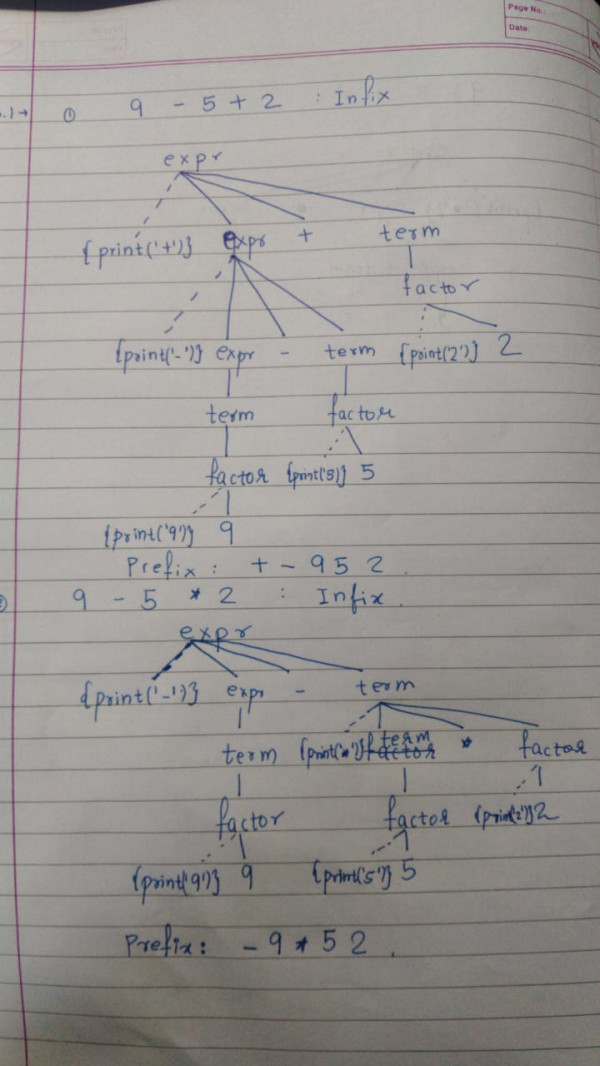 Page No.:
Date:
.) → ① 9 - 5 + 2 : Infix
expr
{print('+')} expr + term
factor
{print('-')} expr - term {print('2')} 2
term factor
factor {print('5')} 5
{print('9')} 9
Prefix : + - 9 5 2
② 9 - 5 * 2 : Infix.
expr
{print('-')} expr - term
term {print('*')} term * factor
factor factor {print('2')} 2
{print('9')} 9 {print('5')} 5
Prefix: - 9 * 5 2 .